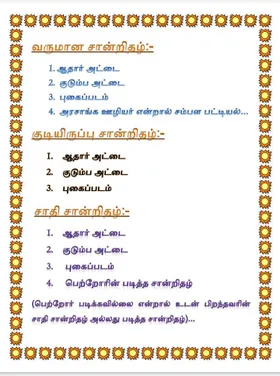 வருமான சான்றிதழ்:-
1. ஆதார் அட்டை
2. குடும்ப அட்டை
3. புகைப்படம்
4. அரசாங்க ஊழியர் என்றால் சம்பள பட்டியல்...
குடியிருப்பு சான்றிதழ்:-
1. ஆதார் அட்டை
2. குடும்ப அட்டை
3. புகைப்படம்
சாதி சான்றிதழ்:-
1. ஆதார் அட்டை
2. குடும்ப அட்டை
3. புகைப்படம்
4. பெற்றோரின் படித்த சான்றிதழ்
(பெற்றோர் படிக்கவில்லை என்றால் உடன் பிறந்தவரின்
சாதி சான்றிதழ் அல்லது படித்த சான்றிதழ்)...